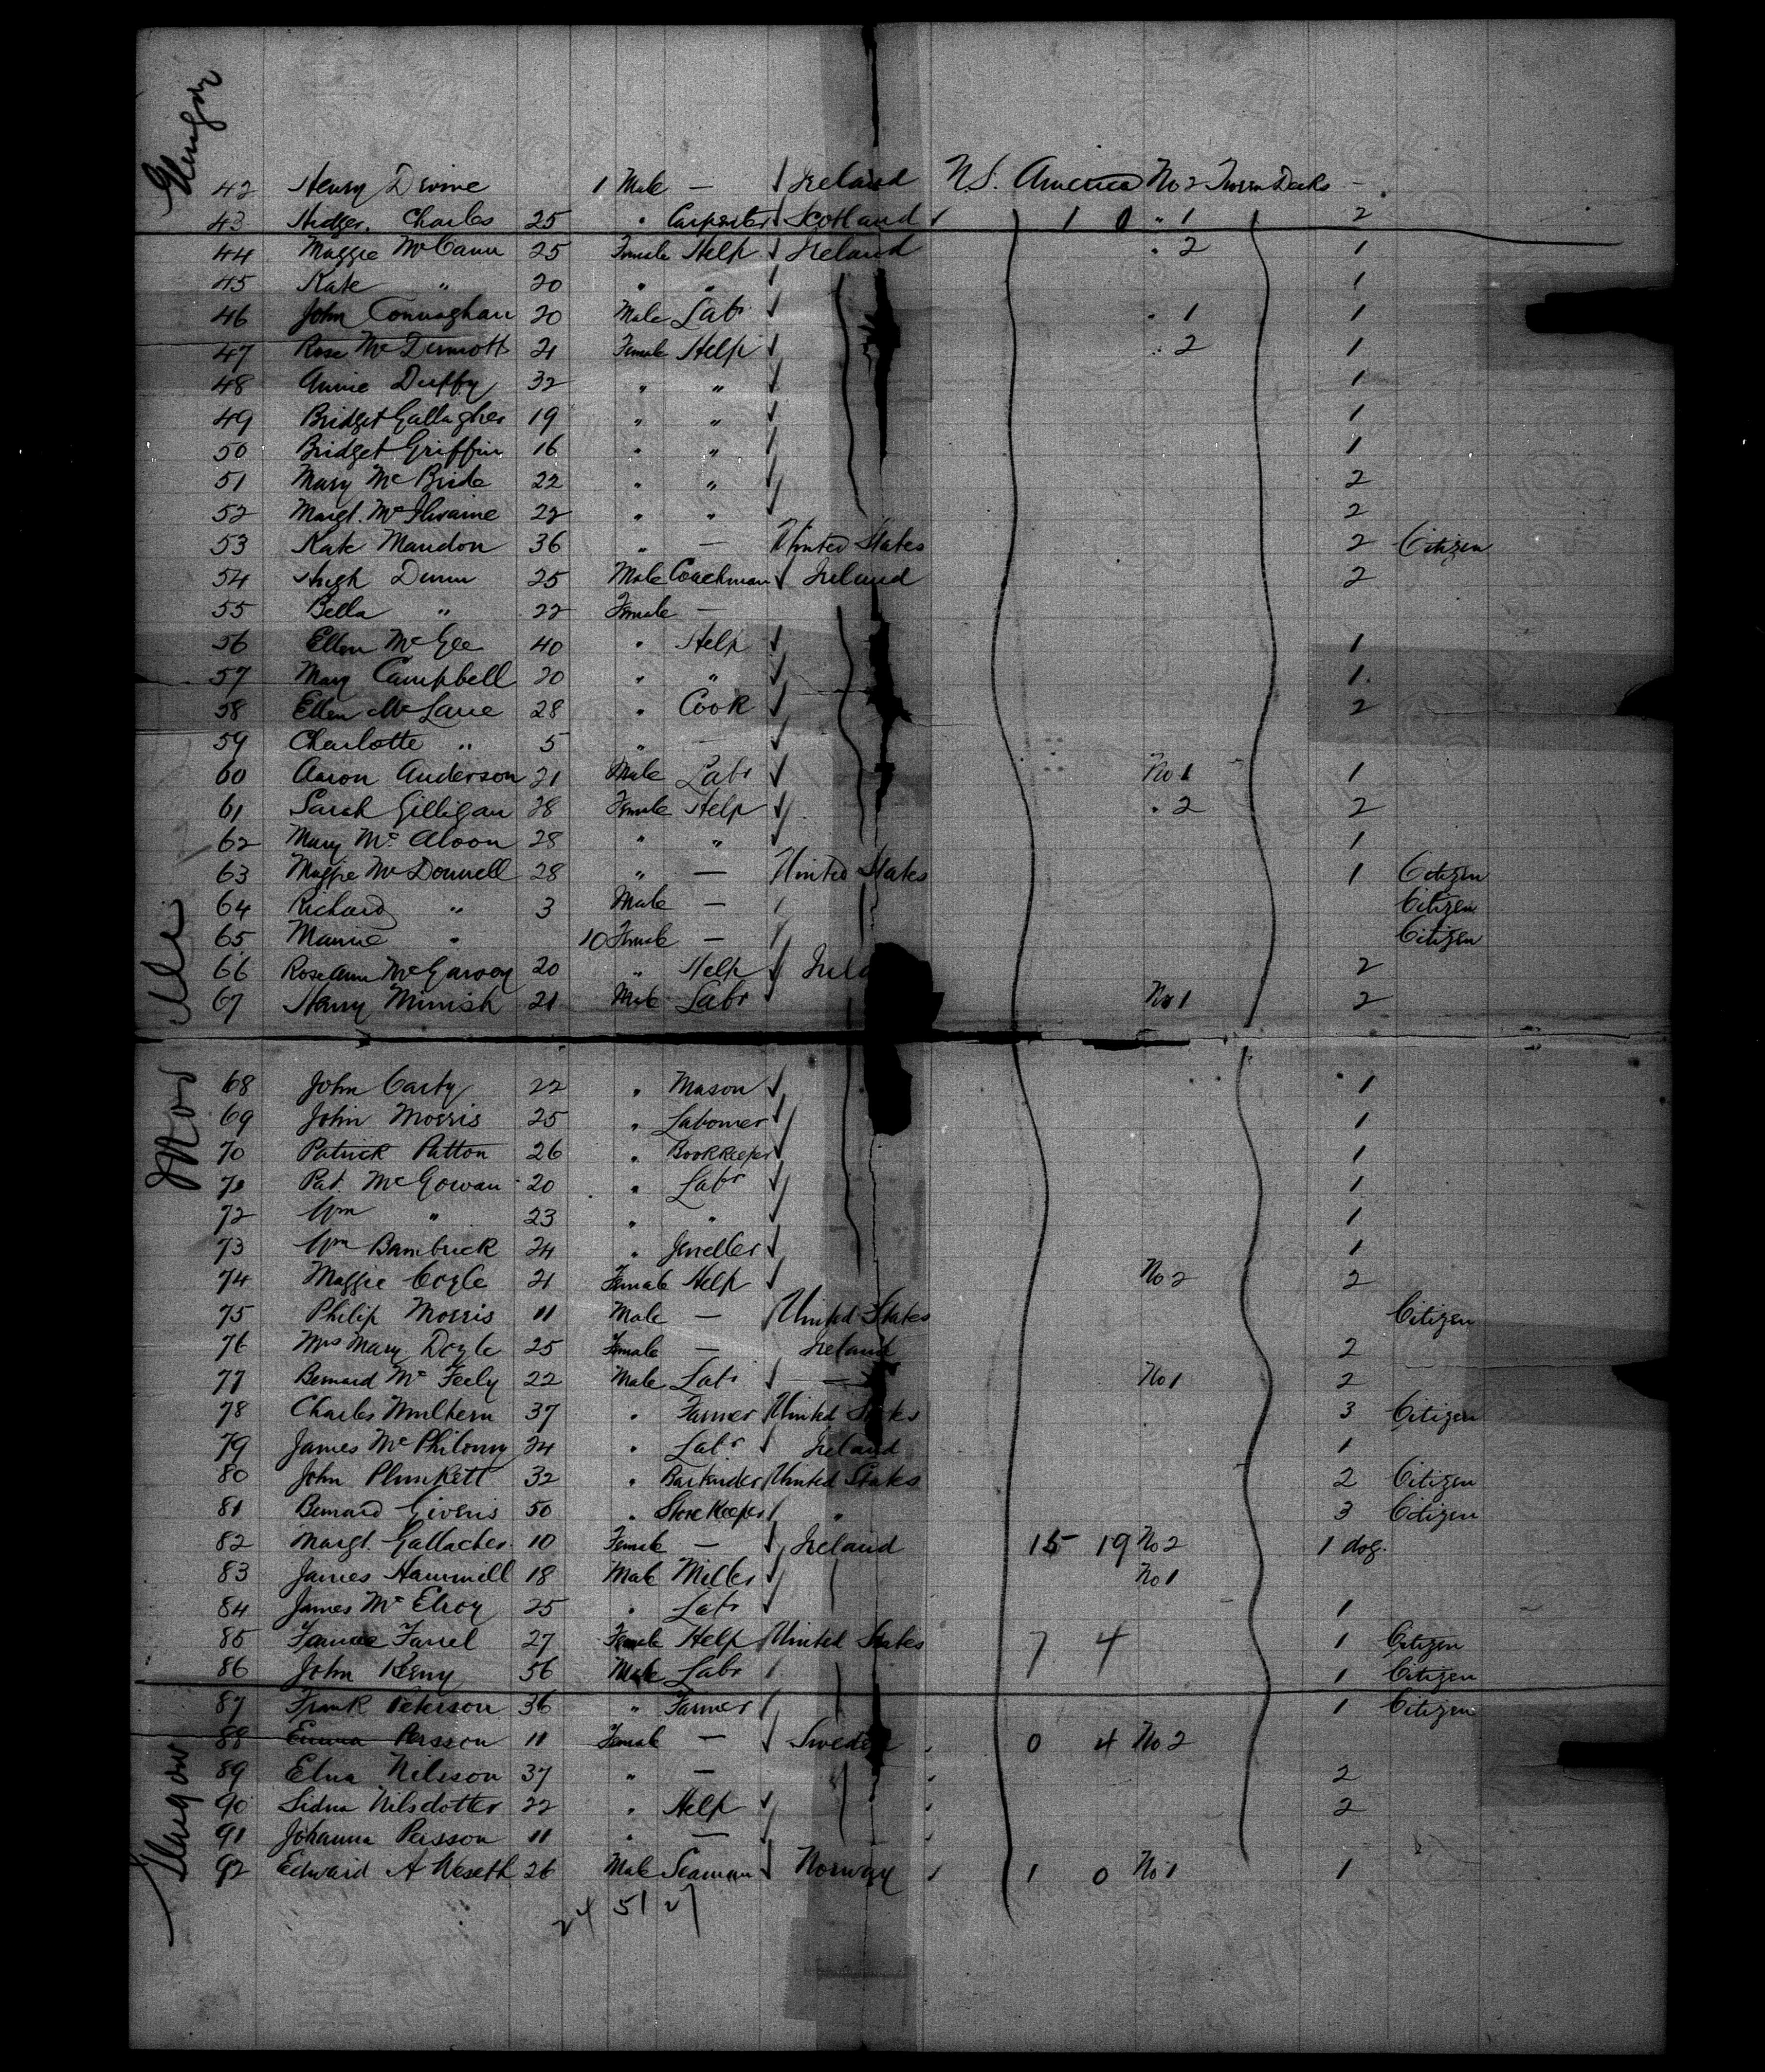 Glasgow
42 Henry Divine 1 Male — Ireland U.S. America No 2 Tween Decks -
43 Hedger, Charles 25 " Carpenter Scotland 1 0 " 1 2
44 Maggie McCann 25 Female Help Ireland " 2 1
45 Kate " 20 " " 1
46 John Connaghan 20 Male Labr " 1 1
47 Rose McDermott 21 Female Help " 2 1
48 Annie Duffy 32 " " 1
49 Bridget Gallagher 19 " " 1
50 Bridget Griffin 16 " " 1
51 Mary McBride 22 " " 2
52 Margt. McIlwaine 22 " " 2
53 Kate Mandon 36 " — United States 2 Citizen
54 Hugh Dunn 25 Male Coachman Ireland 2
55 Bella " 22 Female —
56 Ellen McGee 40 " Help 1
57 Mary Campbell 20 " " 1
58 Ellen McLane 28 " Cook 2
59 Charlotte " 5 " —
60 Aaron Anderson 21 Male Labr No 1 1
61 Sarah Gilligan 28 Female Help " 2 2
62 Mary McAloon 28 " " 1
63 Maggie McDonnell 28 " — United States 1 Citizen
64 Richard " 3 Male — Citizen
65 Mamie " 10 Female — Citizen
66 Rose Ann McGarvey 20 " Help Irela 2
67 Henry Minnish 21 Male Labr No 1 2
Moville
68 John Carty 22 " Mason 1
69 John Morris 25 " Labourer 1
70 Patrick Patton 26 " Bookkeeper 1
71 Pat. McGowan 20 " Labr 1
72 Wm " 23 " " 1
73 Wm Bambrick 24 " Jeweller 1
74 Maggie Coyle 21 Female Help No 2 2
75 Philip Morris 11 Male — United States Citizen
76 Mrs Mary Doyle 25 Female — Ireland 2
77 Bernard McFeely 22 Male Labr — No 1 2
78 Charles Mulhern 37 " Farmer United States 3 Citizen
79 James McPhilomy 24 " Labr Ireland 1
80 John Plunkett 32 " Bartender United States 2 Citizen
81 Bernard Givens 50 " Storekeeper " 3 Citizen
82 Margt. Gallacher 10 Female — Ireland 15 19 No 2 1 dog.
83 James Hammill 18 Male Miller No 1
84 James McElroy 25 " Labr 1
85 Farrel 27 Female Help United States 7 4 1 Citizen
86 John Keeny 56 Male Labr 1 Citizen
87 Frank Peterson 36 " Farmer 1 Citizen
88 Emma Persson 11 Female — Sweden 0 4 No 2
89 Elna Nilsson 37 " — 2
90 Sidna Nilsdotter 22 " Help 2
91 Johanna Persson 11 " —
92 Edward A Weseth 26 Male Seaman Norway 1 0 No 1 1
Glasgow
24 51 27